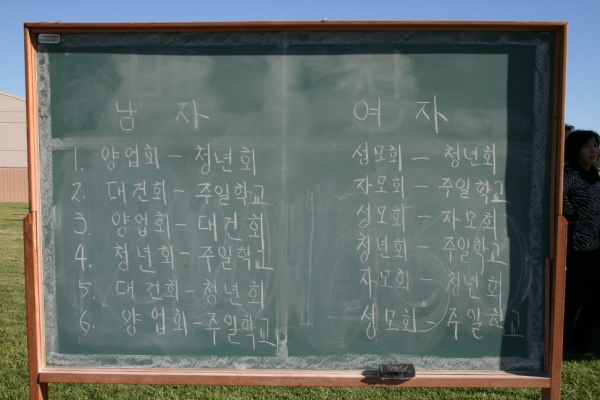 남 자
1. 양업회 - 청년회
2. 대건회 - 주일학교
3. 양업회 - 대건회
4. 청년회 - 주일학교
5. 대건회 - 청년회
6. 양업회 - 주일학교
여 자
성모회 - 청년회
자모회 - 주일학교
성모회 - 자모회
청년회 - 주일학교
자모회 - 청년회
성모회 - 주일학교